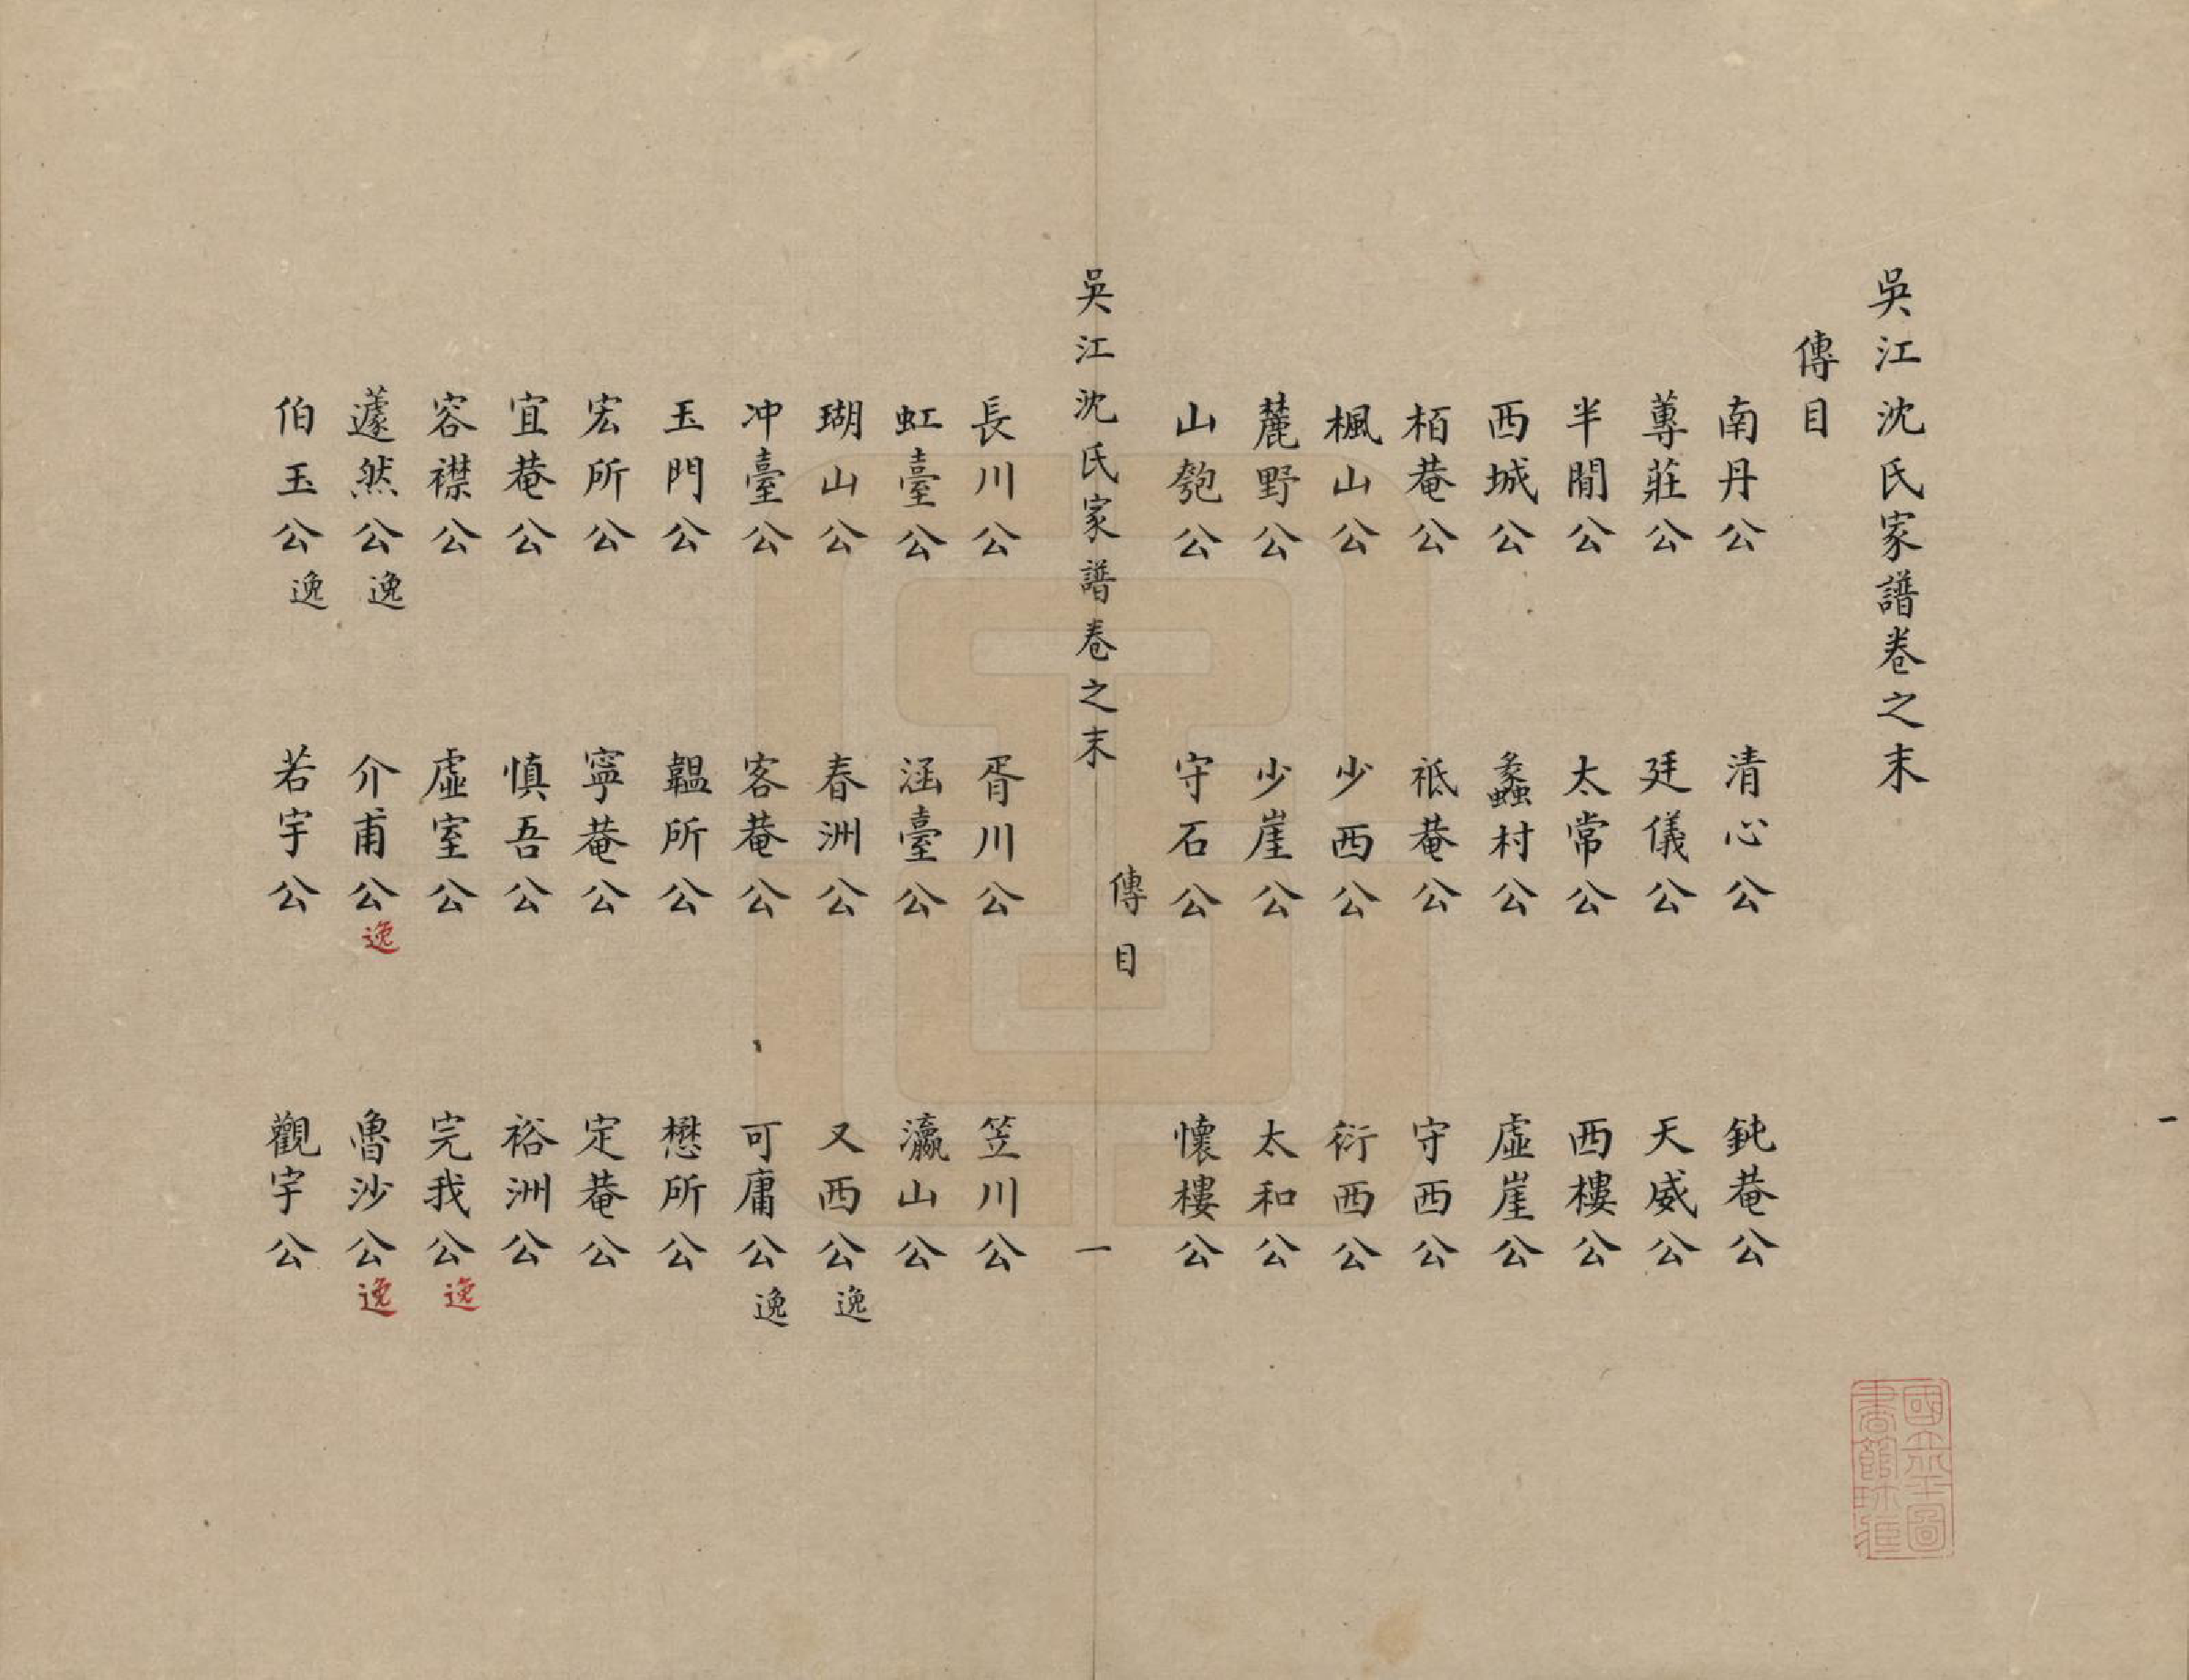 吳江沈氏家譜卷之末
傳目
南丹公 清心公 鈍菴公
蓴莊公 廷儀公 天威公
半閒公 太常公 西樓公
西城公 蠡村公 虛崖公
栢菴公 祗菴公 守西公
楓山公 少西公 衍西公
麓野公 少崖公 太和公
山匏公 守石公 懷樓公
吳江沈氏家譜卷之末 傳目 一
長川公 胥川公 笠川公
虹臺公 涵臺公 瀛山公
瑚山公 春洲公 又西公逸
冲臺公 客菴公 可庸公逸
玉門公 韞所公 懋所公
宏所公 寧菴公 定菴公
宜菴公 慎吾公 裕洲公
容襟公 虛室公 完我公逸
蘧然公逸 介甫公逸 魯沙公逸
伯玉公逸 若宇公 觀宇公
一
國立北平圖書館珍藏